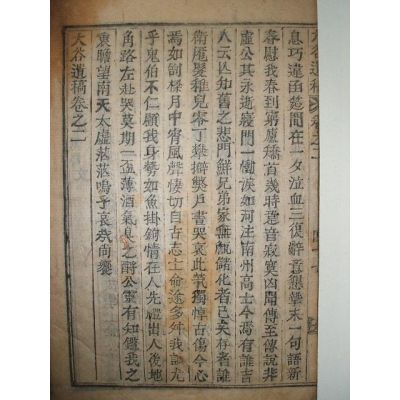 大谷遺稿 卷之二
息巧違函楚間在一夕泣血三復辭意懇摯末一句語新
春慰我春到窮廬矯首幾時意音寂寞凶聞傳至傳說非
虛公其永逝寢門一慟淚如河注南州高士今焉有誰吉
人云亡知舊之悲門鮮兄弟家無甔儲化者已矣存者誰
衛髮稚兒零丁攀擗戶晝哭哀此煢獨悼古傷今心
焉如割樑月中宵風聲悽切自古志士命途多舛我誰尤
乎鬼伯不仁顧我身勞如魚掛鉤情在人先禮出人後地
角路左赴哭莫期一盃薄酒氣臭之酹公靈有知鑑我之
衷瞻望南天太虛茫茫嗚乎哀哉尚饗
大谷遺稿卷之二